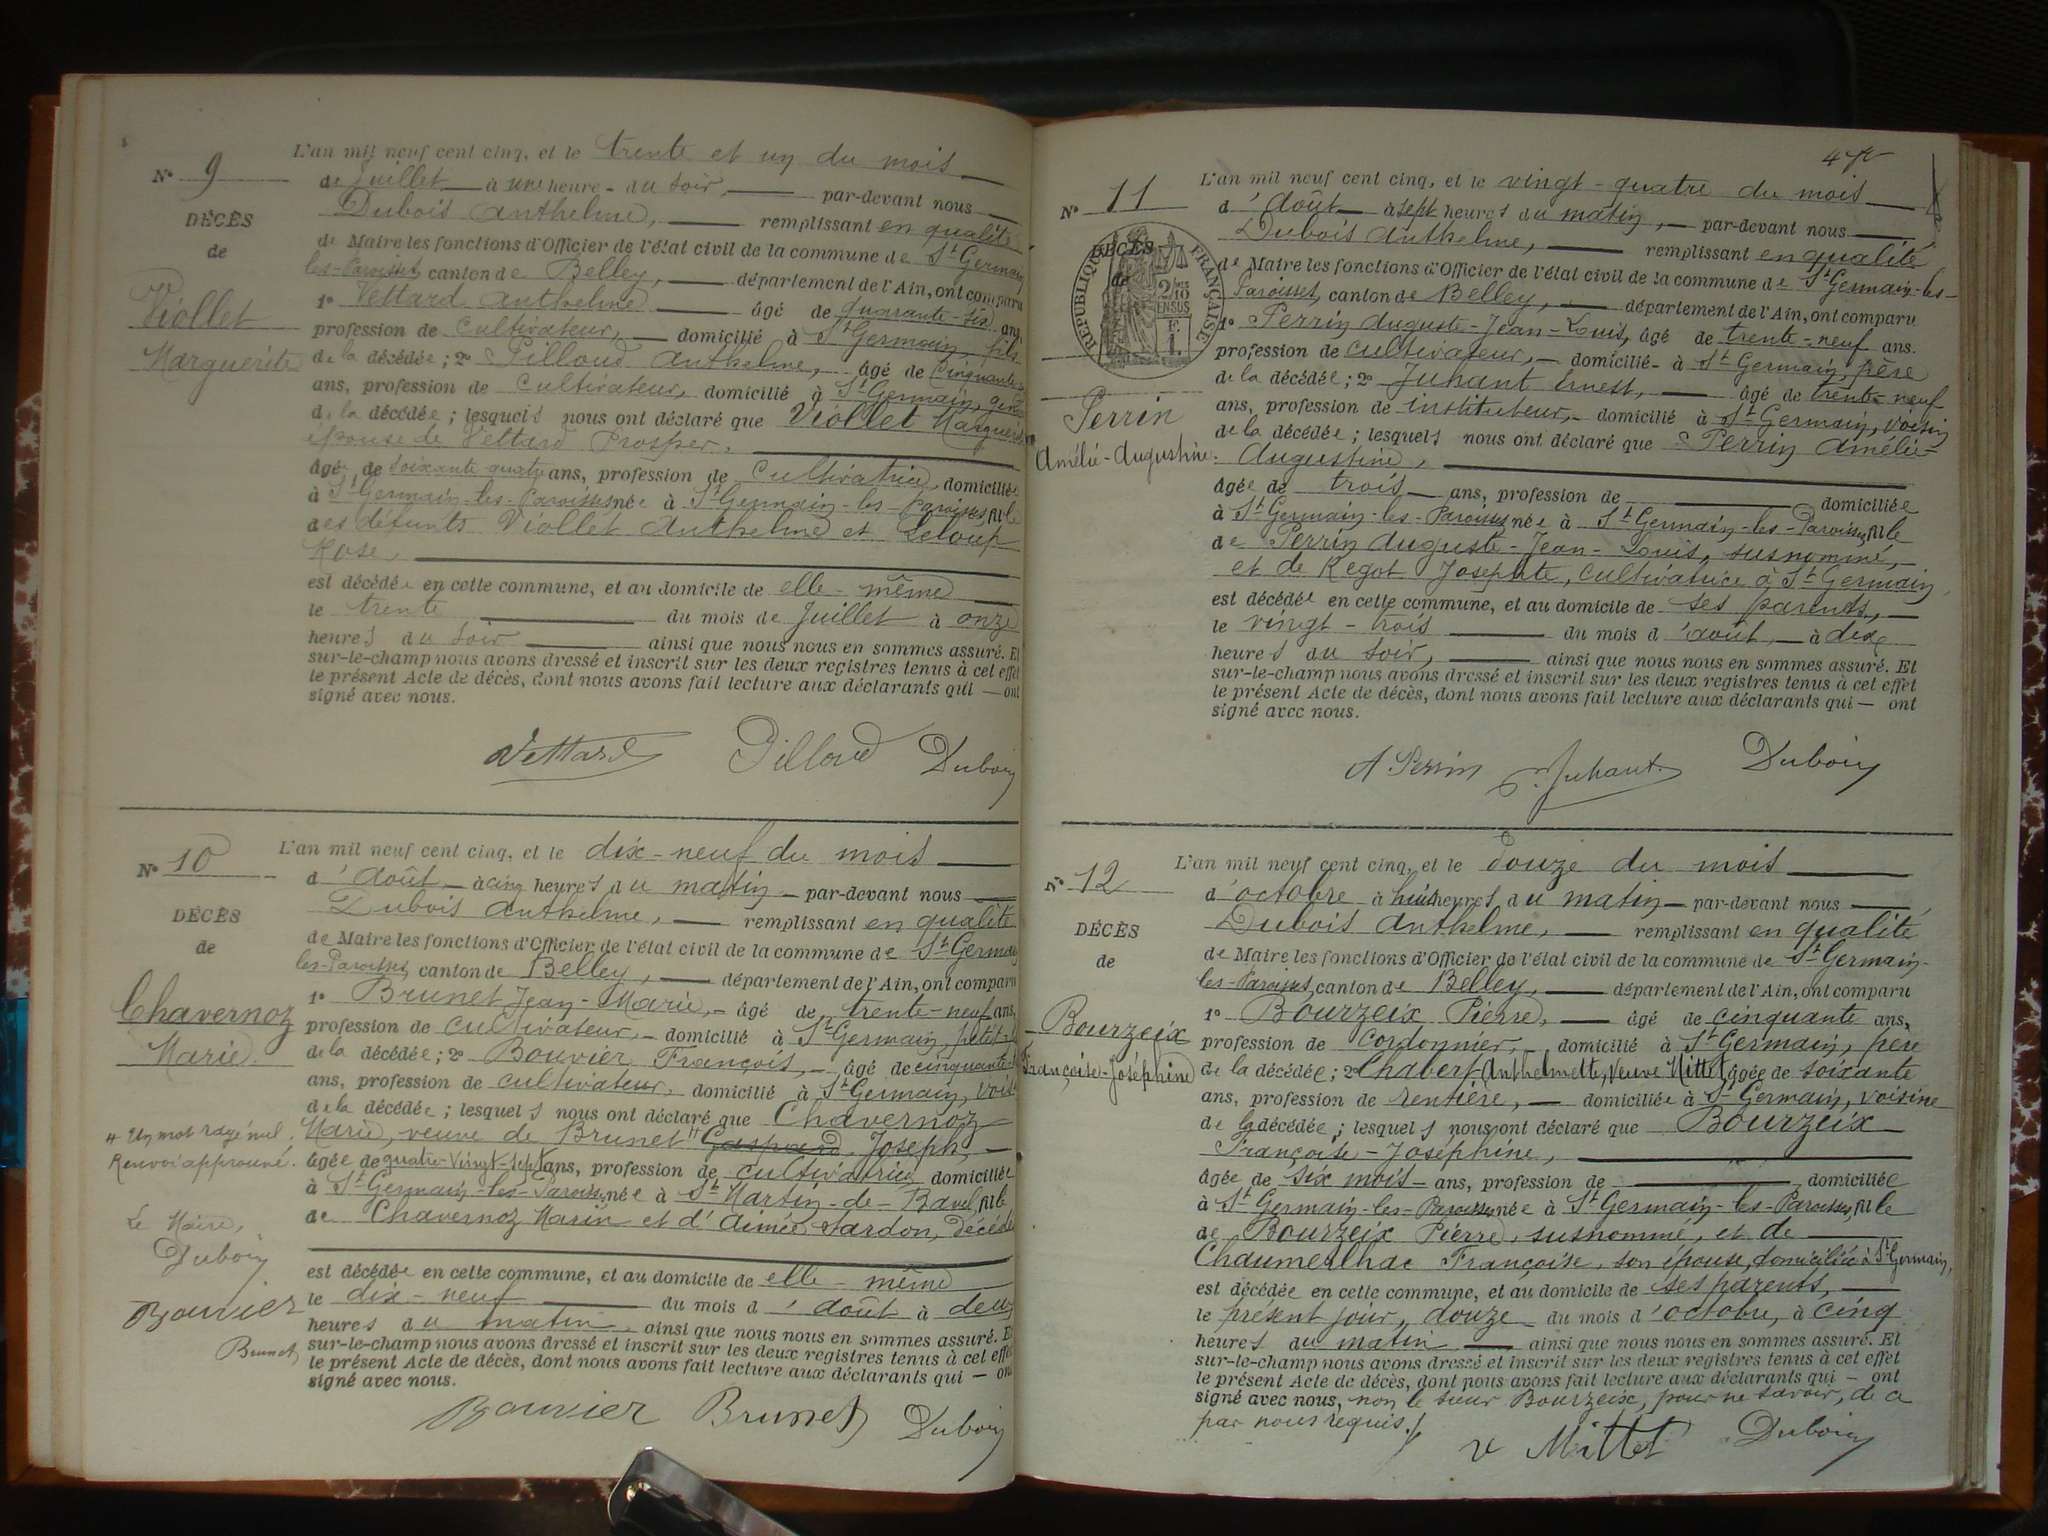 N° 9
DÉCÈS
de
Viollet
Marguerite
L'an mil neuf cent cinq, et le trente et un du mois
de Juillet à une heure du soir, par-devant nous
Dubois Anthelme, remplissant en qualité
de Maire les fonctions d'Officier de l'état civil de la commune de St Germain
les-Paroisses, canton de Belley, département de l'Ain, ont comparu
1° Vettard Anthelme âgé de quarante-six ans
profession de cultivateur, domicilié à St Germain, fils
de la décédée; 2° Pilloud Anthelme, âgé de cinquante
ans, profession de cultivateur, domicilié à St Germain,
de la décédée; lesquels nous ont déclaré que Viollet Marguerite
épouse de Vettard Prosper,
âgée de soixante-quatre ans, profession de cultivatrice, domiciliée
à St Germain-les-Paroisses née à St Germain-les-Paroisses, fille
des défunts Viollet Anthelme et Leloup
Rose,
est décédée en cette commune, et au domicile de elle-même
le trente du mois de Juillet à onze
heures du soir ainsi que nous nous en sommes assuré. Et
sur-le-champ nous avons dressé et inscrit sur les deux registres tenus à cet effet
le présent Acte de décès, dont nous avons fait lecture aux déclarants qui — ont
signé avec nous.
Vettard Pilloud Dubois
N° 10
DÉCÈS
de
Chavernoz
Marie
Un mot rayé nul.
Renvoi approuvé.
Le Maire,
Dubois
Bouvier
Brunet
L'an mil neuf cent cinq, et le dix-neuf du mois
d'août à cinq heures du matin par-devant nous
Dubois Anthelme, remplissant en qualité
de Maire les fonctions d'Officier de l'état civil de la commune de St Germain
les-Paroisses, canton de Belley, département de l'Ain, ont comparu
1° Brunet Jean-Marie, âgé de trente-neuf ans,
profession de cultivateur, domicilié à St Germain, petit-
de la décédée; 2° Bouvier François, âgé de cinquante
ans, profession de cultivateur, domicilié à St Germain,
de la décédée; lesquels nous ont déclaré que Chavernoz
Marie, veuve de Brunet Gaspard Joseph,
âgée de quatre-vingt-sept ans, profession de cultivatrice domiciliée
à St Germain-les-Paroisses née à St Martin-de-Bavel, fille
de Chavernoz Marin et d'Aimée Jardon, décédés
est décédée en cette commune, et au domicile de elle-même
le dix-neuf du mois d'août à deux
heures du matin, ainsi que nous nous en sommes assuré. Et
sur-le-champ nous avons dressé et inscrit sur les deux registres tenus à cet effet
le présent Acte de décès, dont nous avons fait lecture aux déclarants qui — ont
signé avec nous.
Bouvier Brunet Dubois
N° 11
DÉCÈS
de
RÉPUBLIQUE FRANÇAISE
2/10
EN SUS
Perrin
Amélie-Augustine.
L'an mil neuf cent cinq, et le vingt-quatre du mois
d'août à sept heures du matin, par-devant nous
Dubois Anthelme, remplissant en qualité
de Maire les fonctions d'Officier de l'état civil de la commune de St Germain-les-
Paroisses, canton de Belley, département de l'Ain, ont comparu
1° Perrin Auguste-Jean-Louis, âgé de trente-neuf ans.
profession de cultivateur, domicilié à St Germain, père
de la décédée; 2° Juhant Ernest, âgé de trente-neuf
ans, profession de instituteur, domicilié à St Germain, voisin
de la décédée; lesquels nous ont déclaré que Perrin Amélie-
Augustine,
âgée de trois ans, profession de domiciliée
à St Germain-les-Paroisses née à St Germain-les-Paroisses, fille
de Perrin Auguste-Jean-Louis, susnommé,
et de Regot Josephte, cultivatrice à St Germain
est décédée en cette commune, et au domicile de ses parents,
le vingt-trois du mois d'août, à dix
heures du soir, ainsi que nous nous en sommes assuré. Et
sur-le-champ nous avons dressé et inscrit sur les deux registres tenus à cet effet
le présent Acte de décès, dont nous avons fait lecture aux déclarants qui — ont
signé avec nous.
A Perrin Juhant. Dubois
N° 12
DÉCÈS
de
Bourzeix
Françoise-Joséphine
L'an mil neuf cent cinq, et le douze du mois
d'octobre à huit heures du matin par-devant nous
Dubois Anthelme, remplissant en qualité
de Maire les fonctions d'Officier de l'état civil de la commune de St Germain-
les-Paroisses, canton de Belley, département de l'Ain, ont comparu
1° Bourzeix Pierre, âgé de cinquante ans,
profession de cordonnier, domicilié à St Germain, père
de la décédée; 2° Chabert Anthelmette, veuve Mittet, âgée de soixante
ans, profession de rentière, domiciliée à St Germain, voisine
de la décédée; lesquels nous ont déclaré que Bourzeix
Françoise-Joséphine,
âgée de six mois ans, profession de domiciliée
à St Germain-les-Paroisses née à St Germain-les-Paroisses, fille
de Bourzeix Pierre, susnommé, et de
Chaumeilhac Françoise, son épouse, domiciliée à St Germain,
est décédée en cette commune, et au domicile de ses parents,
le présent jour, douze du mois d'octobre, à cinq
heures du matin ainsi que nous nous en sommes assuré. Et
sur-le-champ nous avons dressé et inscrit sur les deux registres tenus à cet effet
le présent Acte de décès, dont nous avons fait lecture aux déclarants qui — ont
signé avec nous, non le sieur Bourzeix, pour ne savoir, de ce
par nous requis.
v Mittet Dubois